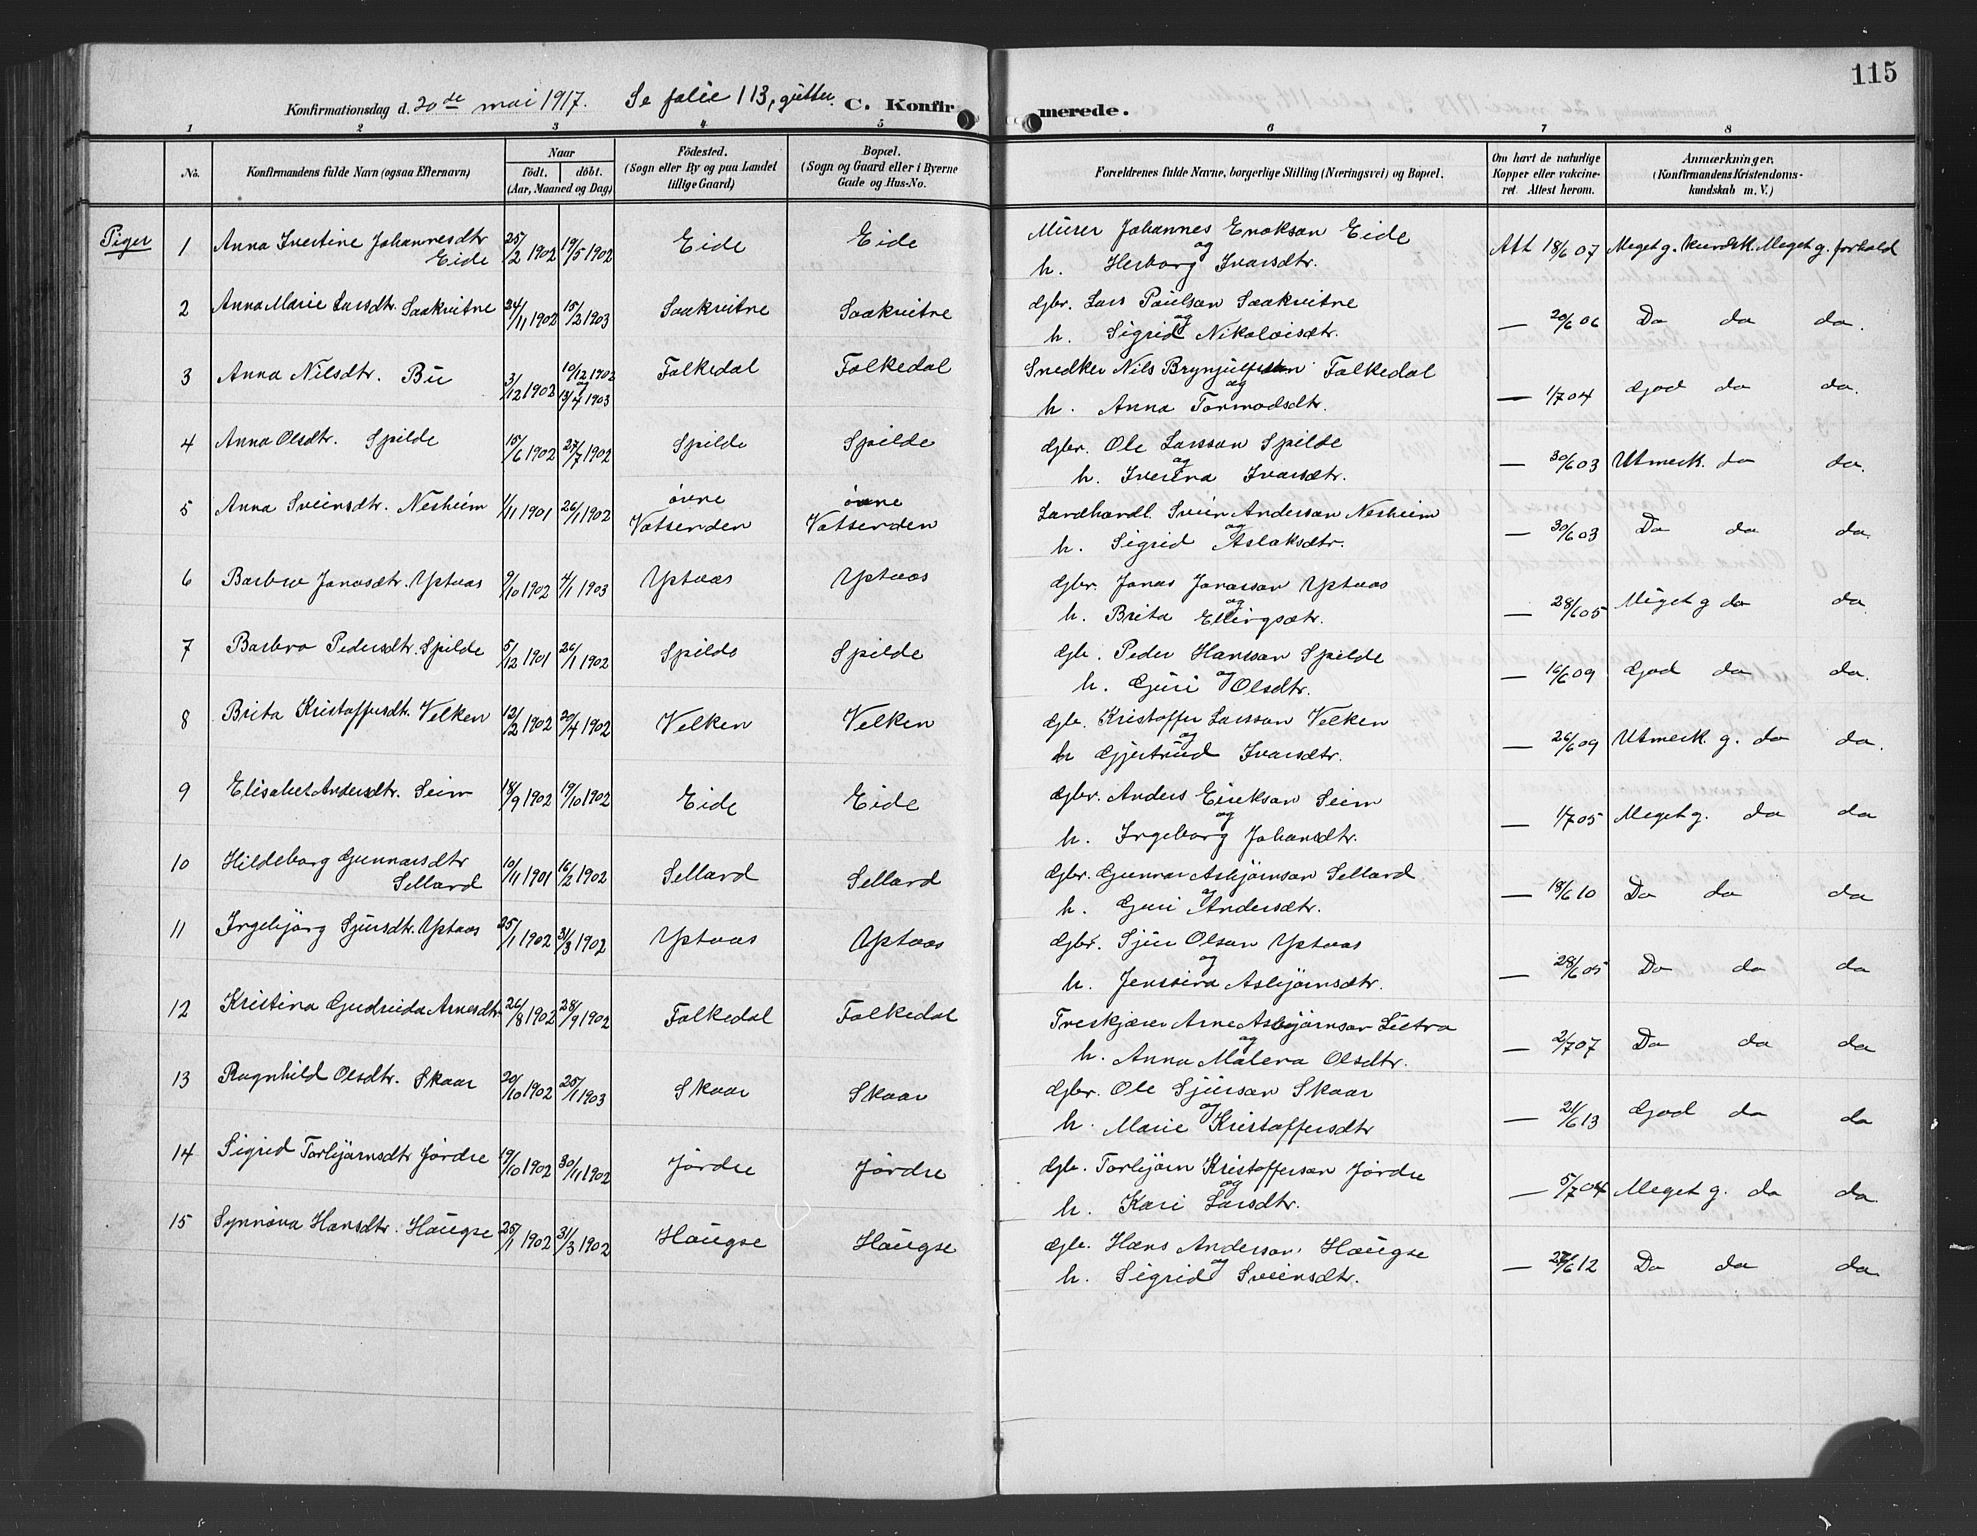 115
Konfirmationsdag d. 20de mai 1917. Se folie 113, gutter. C. Konfirmerede.
1 2 3 4 5 6 7 8
No. Konfirmandens fulde Navn (ogsaa Efternavn) Naar født. døbt. (Aar, Maaned og Dag) Fødested. (Sogn eller By og paa Landet tillige Gaard) Bopæl. (Sogn og Gaard eller i Byerne Gade og Hus-No. Forældrenes fulde Navne, borgerlige Stilling (Næringsvei) og Bopæl. Om havt de naturlige Kopper eller vakcineret. Attest herom. Anmærkninger. (Konfirmandens Kristendomskundskab m. V.)
Piger
1 Anna Ivertine Johannesdtr Eide 25/2 1902 19/5 1902 Eide Eide Murer Johannes Enokson Eide og h. Herborg Ivarsdtr. Att 18/6 07 Meget g. kundsk. Meget g. forhold
2 Anna Marie Larsdtr. Saakvitne 24/11 1902 15/2 1903 Saakvitne Saakvitne Gbr. Lars Paulson Saakvitne og h. Sigrid Nikolaisdtr. — 20/6 06 Do do do.
3 Anna Nilsdtr. Bu 3/12 1902 10/12 1902 og 13/4 1903 Folkedal Folkedal Snedker Nils Brynjulfson Folkedal og h. Anna Tormodsdtr. — 1/7 04 God do do.
4 Anna Olsdtr. Spilde 15/6 1902 27/7 1902 Spilde Spilde Gbr. Ole Larsson Spilde og h. Iverina Ivarsdtr. — 30/6 03 Utmerk. do do.
5 Anna Sveinsdtr. Nesheim 1/11 1901 26/1 1902 øvre Vatsenden øvre Vatsenden Landhandl. Svein Anderson Nesheim og h. Sigrid Aslaksdtr. — 30/6 03 Do do do.
6 Barbro Jonasdtr. Ystaas 9/10 1902 4/1 1903 Ystaas Ystaas Gbr. Jonas Jonasson Ystaas og h. Brita Ellingsdtr. — 28/6 05 Meget g do do.
7 Barbro Pedersdtr. Spilde 5/12 1901 26/1 1902 Spilde Spilde Gbr. Peder Hansson Spilde og h. Guri Olsdtr. — 16/6 09 God do do.
8 Brita Kristoffersdt. Velken 12/2 1902 20/4 1902 Velken Velken Gbr. Kristoffer Larsson Velken og h Gjertrud Ivarsdtr. — 26/6 09 Utmerk. g. do do.
9 Elisabet Andersdtr. Seim 18/9 1902 19/10 1902 Eide Eide Gbr. Anders Eirikson Seim og h. Ingeborg Johansdtr. — 1/7 05 Meget g. do do
10 Hildeborg Gunnarsdtr Selland 10/11 1901 16/2 1902 Selland Selland Gbr. Gunnar Asbjørnson Selland og h. Guri Andersdtr. — 18/6 10 Do do do
11 Ingebjørg Sjursdtr. Ystaas 25/1 1902 31/3 1902 Ystaas Ystaas Gbr. Sjur Olson Ystaas og h. Jensina Asbjørnsdtr. — 28/6 05 Do do do
12 Kristina Gudrida Arnesdtr 26/8 1902 28/9 1902 Folkedal Folkedal Treskjærer Arne Asbjørnson og h. Anna Malena Olsdtr. — 2/7 07 Do do do
13 Ragnhild Olsdtr. Skaar 20/10 1902 25/1 1903 Skaar Skaar Gbr. Ole Sjurson Skaar og h. Marie Kristoffersdtr — 21/6 13 God do do
14 Sigrid Torbjørnsdtr Jørdre 19/10 1902 30/11 1902 Jørdre Jørdre Gbr. Torbjørn Kristofferson Jørdre og h. Kari Larsdtr. — 5/7 04 Meget g. do do.
15 Synnøva Hansdtr. Haugse 25/1 1902 31/3 1902 Haugse Haugse Gbr. Hans Anderson Haugse og h. Sigrid Sveinsdtr. — 27/6 12 Do do do.